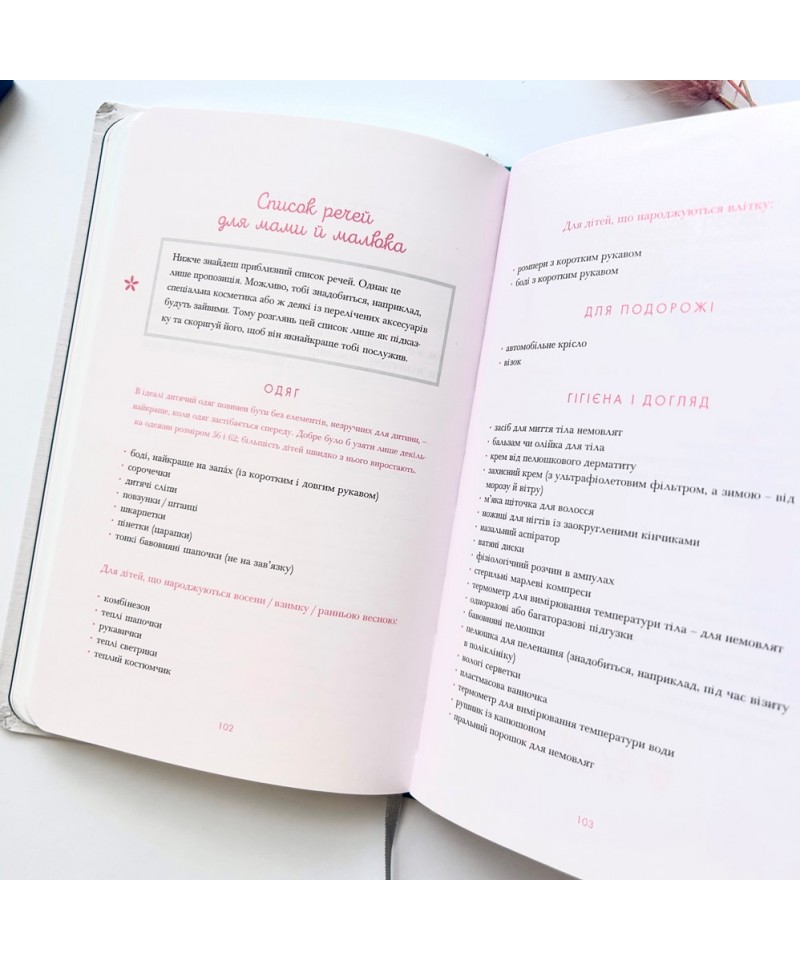 Список речей
для мами й малюка
Нижче знайдеш приблизний список речей. Однак це
лише пропозиція. Можливо, тобі знадобиться, наприклад,
спеціальна косметика або ж деякі із перелічених аксесуарів
будуть зайвими. Тому розглянь цей список лише як підказ-
ку та скоригуй його, щоб він якнайкраще тобі послужив.
ОДЯГ
В ідеалі дитячий одяг повинен бути без елементів, незручних для дитини, –
найкраще, коли одяг застібається спереду. Добре було б узяти лише декіль-
ка одежин розміром 56 і 62; більшість дітей швидко з нього виростають.
· боді, найкраще на запáх (із коротким і довгим рукавом)
· сорочечки
· дитячі сліпи
· повзунки / штанці
· шкарпетки
· пінетки (царапки)
· тонкі бавовняні шапочки (не на зав’язку)
Для дітей, що народжуються восени / взимку / ранньою весною:
· комбінезон
· теплі шапочки
· рукавички
· теплі светрики
· теплий костюмчик
102
Для дітей, що народжуються влітку:
· ромпери з коротким рукавом
· боді з коротким рукавом
ДЛЯ ПОДОРОЖІ
· автомобільне крісло
· візок
ГІГІЄНА І ДОГЛЯД
· засіб для миття тіла немовлят
· бальзам чи олійка для тіла
· крем від пелюшкового дерматиту
· захисний крем (з ультрафіолетовим фільтром, а зимою – від
морозу й вітру)
· м’яка щіточка для волосся
· ножиці для нігтів із заокругленими кінчиками
· назальний аспіратор
· ватяні диски
· фізіологічний розчин в ампулах
· стерильні марлеві компреси
· термометр для вимірювання температури тіла – для немовлят
· одноразові або багаторазові підгузки
· бавовняні пелюшки
· пелюшка для пеленання (знадобиться, наприклад, під час візиту
в поліклініку)
· вологі серветки
· пластмасова ванночка
· термометр для вимірювання температури води
· рушник із капюшоном
· пральний порошок для немовлят
103